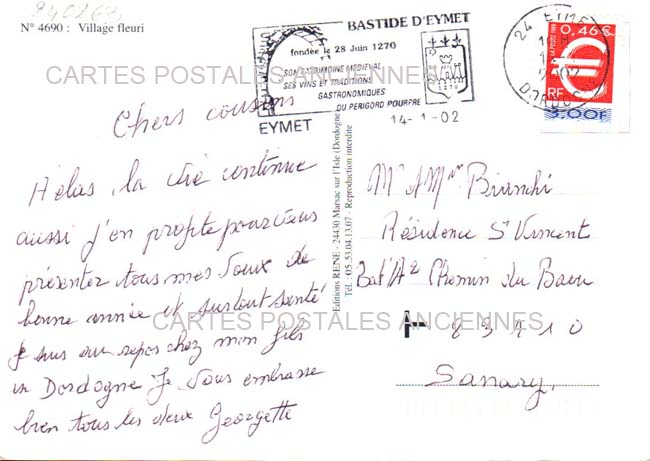 240262
N° 4690 : Village fleuri
BASTIDE D'EYMET
fondée le 28 Juin 1270
SON PATRIMOINE MEDIEVAL
SES VINS ET TRADITIONS
GASTRONOMIQUES
DU PERIGORD POURPRE
EYMET
14-1-02
24 EYMET
DORDOGNE
0,46 €
LA POSTE 1999
RF
3,00F
CARTES POSTALES ANCIENNES
Chers cousins
Hélas, la vie continue
aussi j'en profite pour vous
présenter tous mes voeux de
bonne année et surtout santé
Je suis au repos chez mon fils
en Dordogne Je vous embrasse
bien tous les deux Georgette
Editions RENE - 24430 Marsac sur l'Isle (Dordogne)
Tél. : 05.53.04.13.07 - Reproduction interdite
Mr & Mme Bianchi
Résidence St Vincent
Bat A2 Chemin du Baou
83110
Sanary,
CARTES POSTALES ANCIENNES